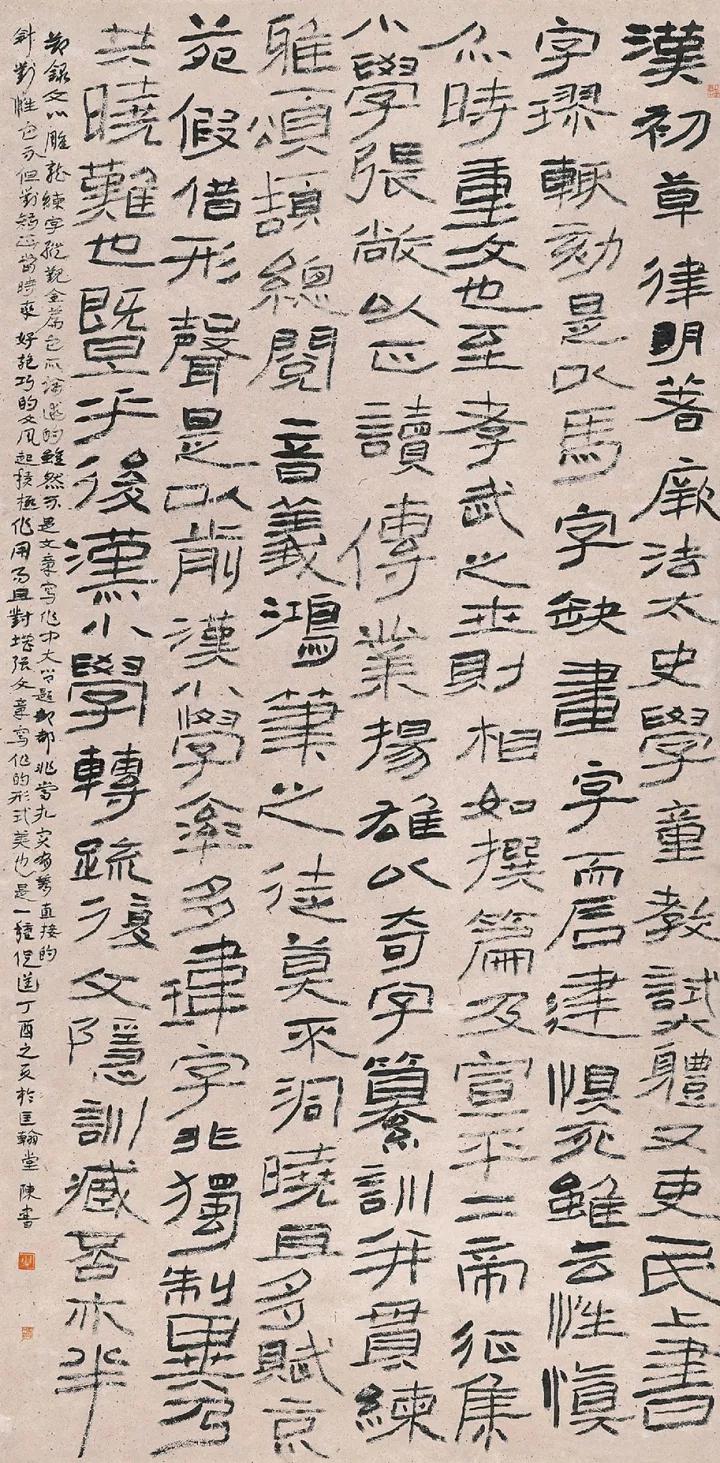 漢初草律明著厥法太史學童教試體又吏民上書
字謬輒劾是以馬字缺畫字而石建懼死雖云性慎
亦時重文也至孝武之世則相如撰篇及宣平二帝征集
小學張敞以正讀傳業揚雄以奇字纂訓并貫練
雅頌頡總閱音義鴻筆之徒莫不洞曉且多賦京
苑假借形聲是以前漢小學率多瑋字非獨制異乃
共曉難也暨乎後漢小學轉疏復文隱訓臧否亦半
節錄文心雕龍練字縱觀全篇它所論述的雖然不是文章寫作中大問題卻都非常扎實有著直接的
針對性它不但對矯正當時愛好詭巧的文風起積極作用而且對增強文章寫作的形式美也是一種促進丁酉之夏於匡翰堂 陳書